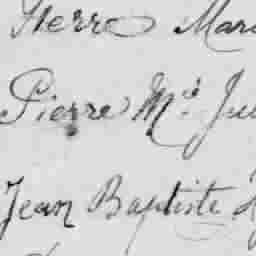 Pierre Mar
Pierre Mc Ju
Jean Baptiste